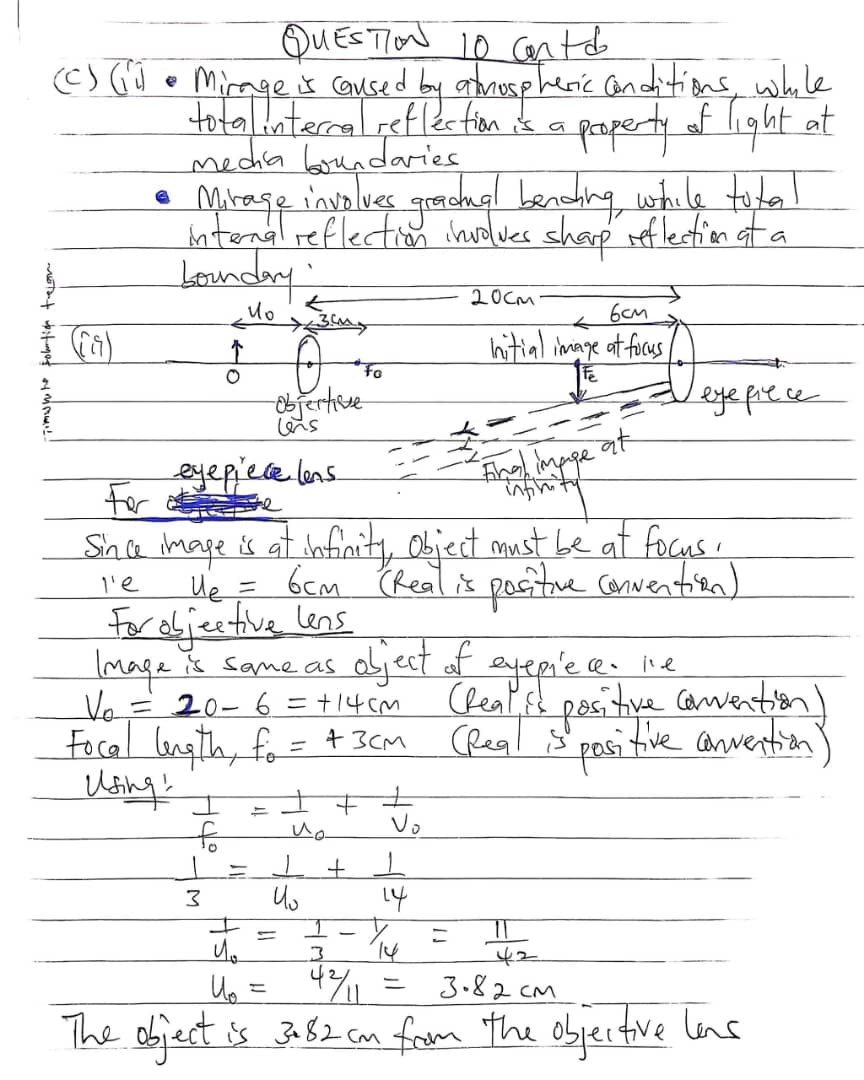 QUESTION 10 Contd
(C) (ii) • Mirage is caused by atmospheric conditions, while
total internal reflection is a property of light at
media boundaries
• Mirage involves gradual bending, while total
internal reflection involves sharp reflection at a
boundary.
20cm
uo 3cm 6cm
(iii) Initial image at focus
O Fo Fe
objective lens
eyepiece
Final image at infinity
eyepiece lens
For
Since image is at infinity, Object must be at focus.
i.e Ue = 6cm (Real is positive convention)
For objective lens
Image is same as object of eyepiece. i.e
Vo = 20 - 6 = +14cm (Real is positive convention)
Focal length, fo = +3cm (Real is positive convention)
Using:
1/fo = 1/uo + 1/Vo
1/3 = 1/Uo + 1/14
1/Uo = 1/3 - 1/14 = 11/42
Uo = 42/11 = 3.82 cm
The object is 3.82 cm from the objective lens